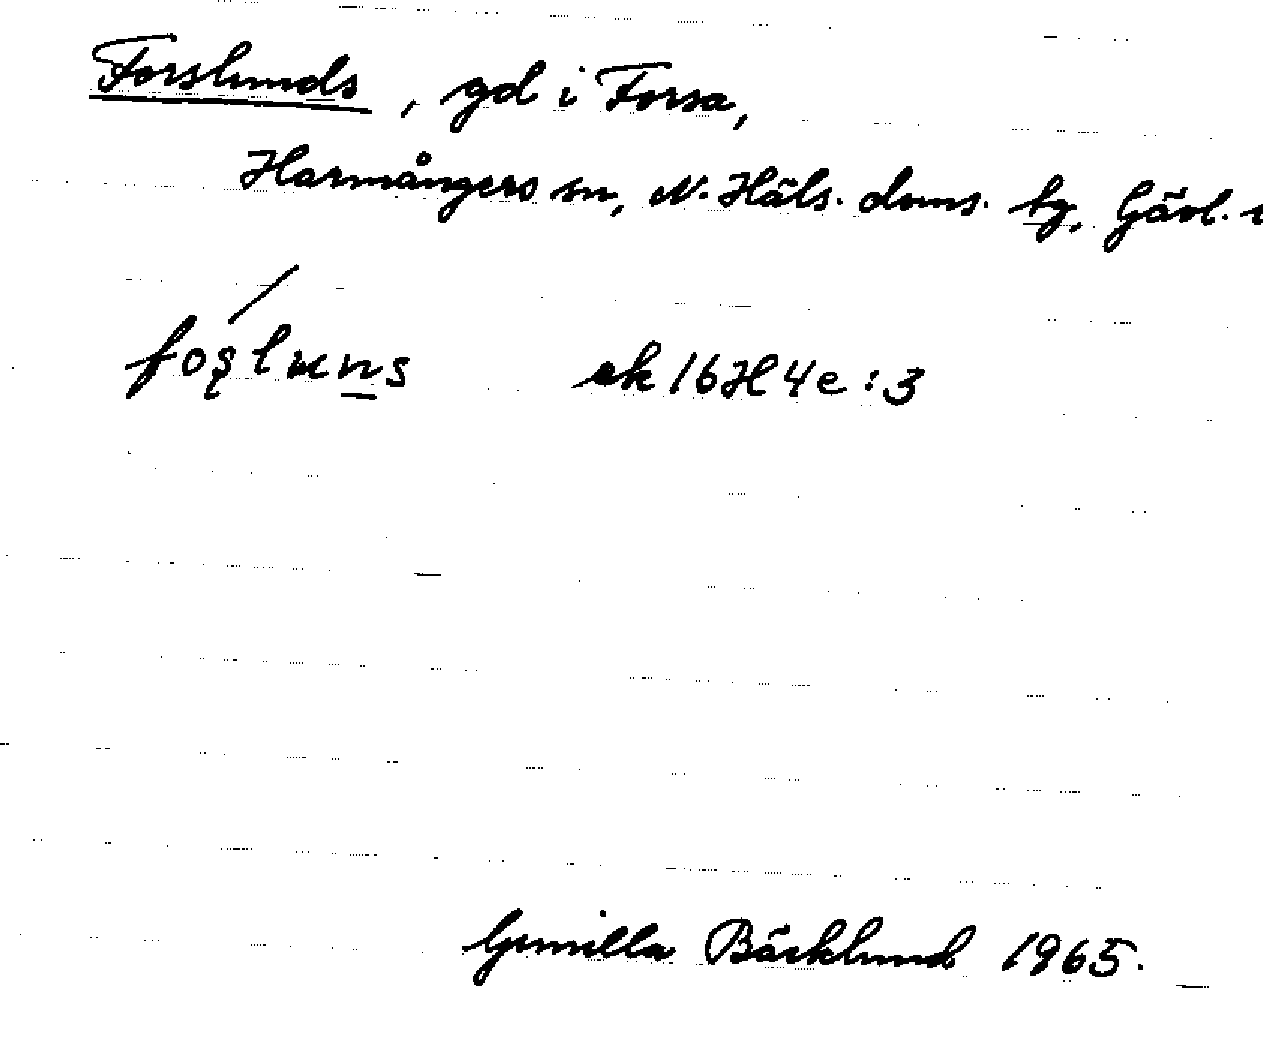 Forslunds, gd i Forsa,
Harmångers sn, N. Häls. doms. tg. Gävl.
foşluns ek 16H4e:3
Gunilla Bäcklund 1965.